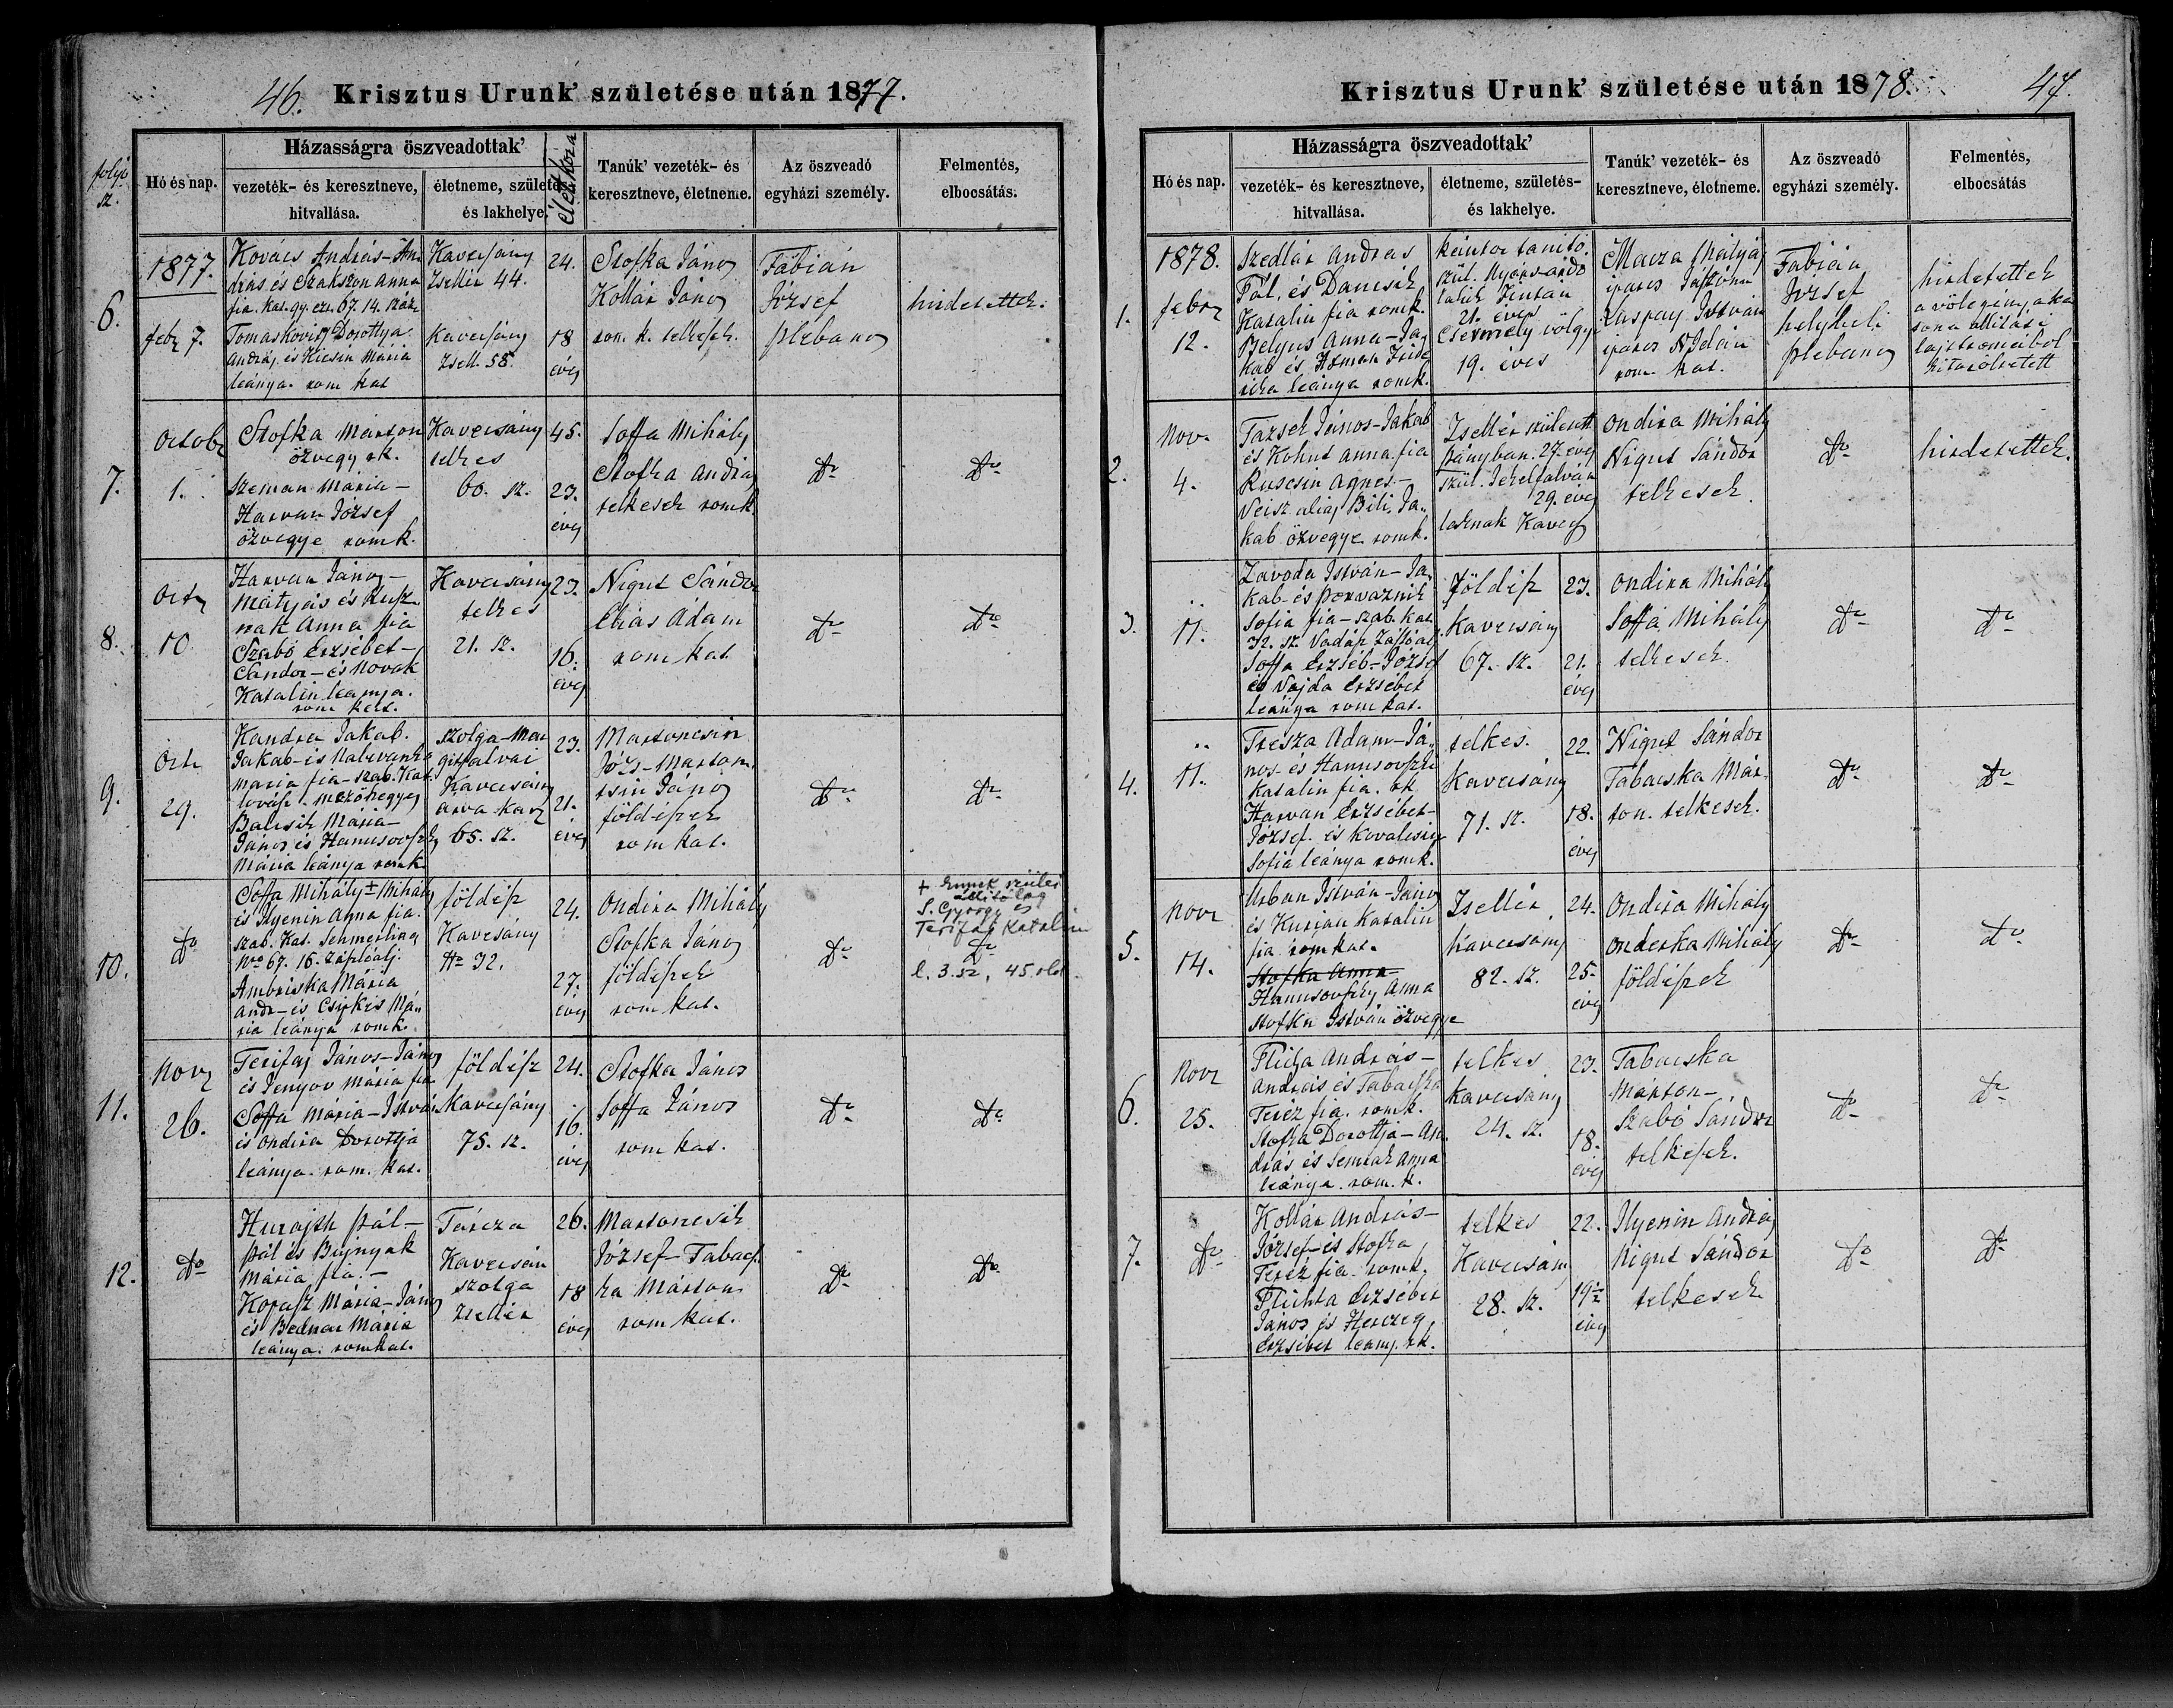 46. Krisztus Urunk' születése után 1877.
folyó sz.
Hó és nap.
Házasságra öszveadottak'
vezeték- és keresztneve,
hitvallása.
életneme, születés-
és lakhelye.
életkora
Tanúk' vezeték- és
keresztneve, életneme.
Az öszveadó
egyházi személy.
Felmentés,
elbocsátás.
6.
1877.
febr 7.
Kovács András - An
drás és Szakszon Anna
fia. Kas. gy. ezr. 67. 14. száz.
Tomaskovics Dorottya
András és Kecsin Mária
leánya. rom kat
Kavecsány
Zsellér 44.
Kavecsány
Zsell. 58.
24.
18
éves
Stofka János
Kollár János
rom. k. telkesek.
Fábián
József
plebanos
hirdetettek.
7.
Octobr
1.
Stofka Márton
özvegy rk.
Szeman Mária -
Harvan József
özvegye romk.
Kavecsány
telkes
60. sz.
45.
23.
éves
Soffa Mihály
Stofka András
telkesek romk.
do
do
8.
Octr
10
Harvan János -
Mátyás és Rusz
nak Anna fia
Szabó Erzsébet -
Sándor - és Novak
Katalin leánya.
rom kat.
Kavecsány
telkes
21. sz.
23.
16.
éves
Nigut Sándor
Eliás Ádám
rom kat.
do
do
9.
Octr
29.
Kandra Jakab.
Jakab - és
Mária fia - szab. Kat.
lovász - mezőhegyes
Balicsik Mária -
János és Hanusovszky
Mária leánya romk.
szolga - Mar
gitfalvai
Kavecsány
65. sz.
23.
21.
éves
Martoncsin
Józs - Marton
csin János
földészek
rom kat.
do
do
10.
do
Soffa Mihály + Mihály
és Ilyenin Anna fia.
szab. Kat. Schmerling
No 67. 16. zászlóalj.
Ambriska Mária
Andr - és Csipkés Má
ria leánya romk.
földész
Kavecsány
No 32.
24.
27.
éves
Ondira Mihály
Stofka János
földészek
rom kat.
do
+ Ennek szülei
állítólag
S. György és
Terifaj Katalin
do
l. 3. sz, 45. old.
11.
Novr
26.
Terifaj János - János
és Jenyov Mária fia
Soffa Mária - István
és Ondira Dorottja
leánya. rom. kat.
földész
Kavecsány
75. sz.
24.
16.
éves
Stofka János
Soffa János
rom kat.
do
do
12.
do
Hurajth Pál -
Pál és Bujnyak
Mária fia. -
Kopasz Mária - János
és Bednar Mária
leánya. romkat.
Tarcza
Kavecsán
szolga
zsellér
26.
18
éves
Martoncsik
József - Tabacs
ka Márton
rom kat.
do
do
Krisztus Urunk' születése után 1878. 47.
Hó és nap.
Házasságra öszveadottak'
vezeték- és keresztneve,
hitvallása.
életneme, születés-
és lakhelye.
Tanúk' vezeték- és
keresztneve, életneme.
Az öszveadó
egyházi személy.
Felmentés,
elbocsátás
1.
1878.
febr
12.
Szedlár Andras
Pál, és Dancsik
Katalin fia romk.
Belyus Anna - Ja
kab és Homan Fride
rika leánya romk.
kántor tanító.
szül. Nyársardo
lakik Zsintán
21. éves
Csermely völgy
19. éves
Macza Mátyás
Jászóan
Laspay István
rom. kat.
Fábián
József
helybeli
plebanos
hirdetettek
a völegény a ka
tona állítási
lajstromaiból
kitöröltetett
2.
Nov.
4.
Tazsek János - Jakab
és Kohut Anna fia
Ruscsin Agnes -
Veisz alias Bili, Ja
kab özvegye romk.
Zsellér született
27. éves
szül. Jekelfalván
29. éves
laknak Kavecs
Ondira Mihály
Nigut Sándor
telkesek.
do
hirdetettek.
3.
"
11.
Zavoda István - Ja
kab - és Porvaznik
Sofia fia - szab. kat.
32. sz. Vadász Zászlóalj
Soffa Erzséb - József
és Vajda Erzsébet
leánya rom kat.
földész
Kavecsány
67. sz.
23.
21.
éves
Ondira Mihály
Soffa Mihály
telkesek.
do
do
4.
"
11.
Tresza Adam - Já
nos - és Hanusovszki
Katalin fia. rk
Harvan Erzsébet -
József. és Kovalcsin
Sofia leánya romk.
telkes.
Kavecsány
71. sz.
22.
18.
éves
Nigut Sándor
Tabacska Már
ton. telkesek.
do
do
5.
Novr
14.
Urban István - János
és Kurian Katalin
fia romkat.
Stofka Anna
Hanusovszky Anna
Stofka István özvegye
Zsellér
Kavecsány
82. sz.
24.
25.
éves
Ondira Mihály
Onderka Mihály
földészek
do
do
6.
Novr
25.
Flichta András -
András és Tabacska
Teréz fia. romk.
Stofka Dorottja - An
drás és Semrak Anna
leánya. rom. k.
telkes
Kavecsány
24. sz.
23.
18.
éves
Tabacska
Márton -
Szabó Sándor
telkesek.
do
do
7.
do
Kollár András -
József - és Stofka
Teréz fia - romk.
Flichta Erzsébet
János és Herczeg
Erzsébet leány. rk.
telkes
Kavecsány
28. sz.
22.
19 ½
éves
Ilyenin András
Nigut Sándor
telkesek
do
do